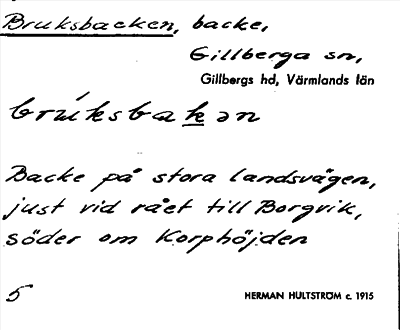 Bruksbacken, backe,
Gillberga sn,
Gillbergs hd, Värmlands län
brúksbakən
Backe på stora landsvägen,
just vid rået till Borgvik,
söder om Korphöjden
5
HERMAN HULTSTRÖM c. 1915